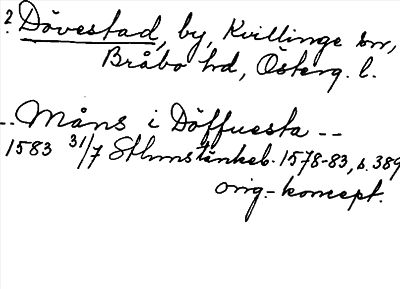 2. Dövestad, by, Kvillinge sn,
Bråbo hd, Österg. l.
-- Måns i Döffuesta --
1583 31/7 Sthmstänkeb. 1578-83, s. 389
orig.-koncept.